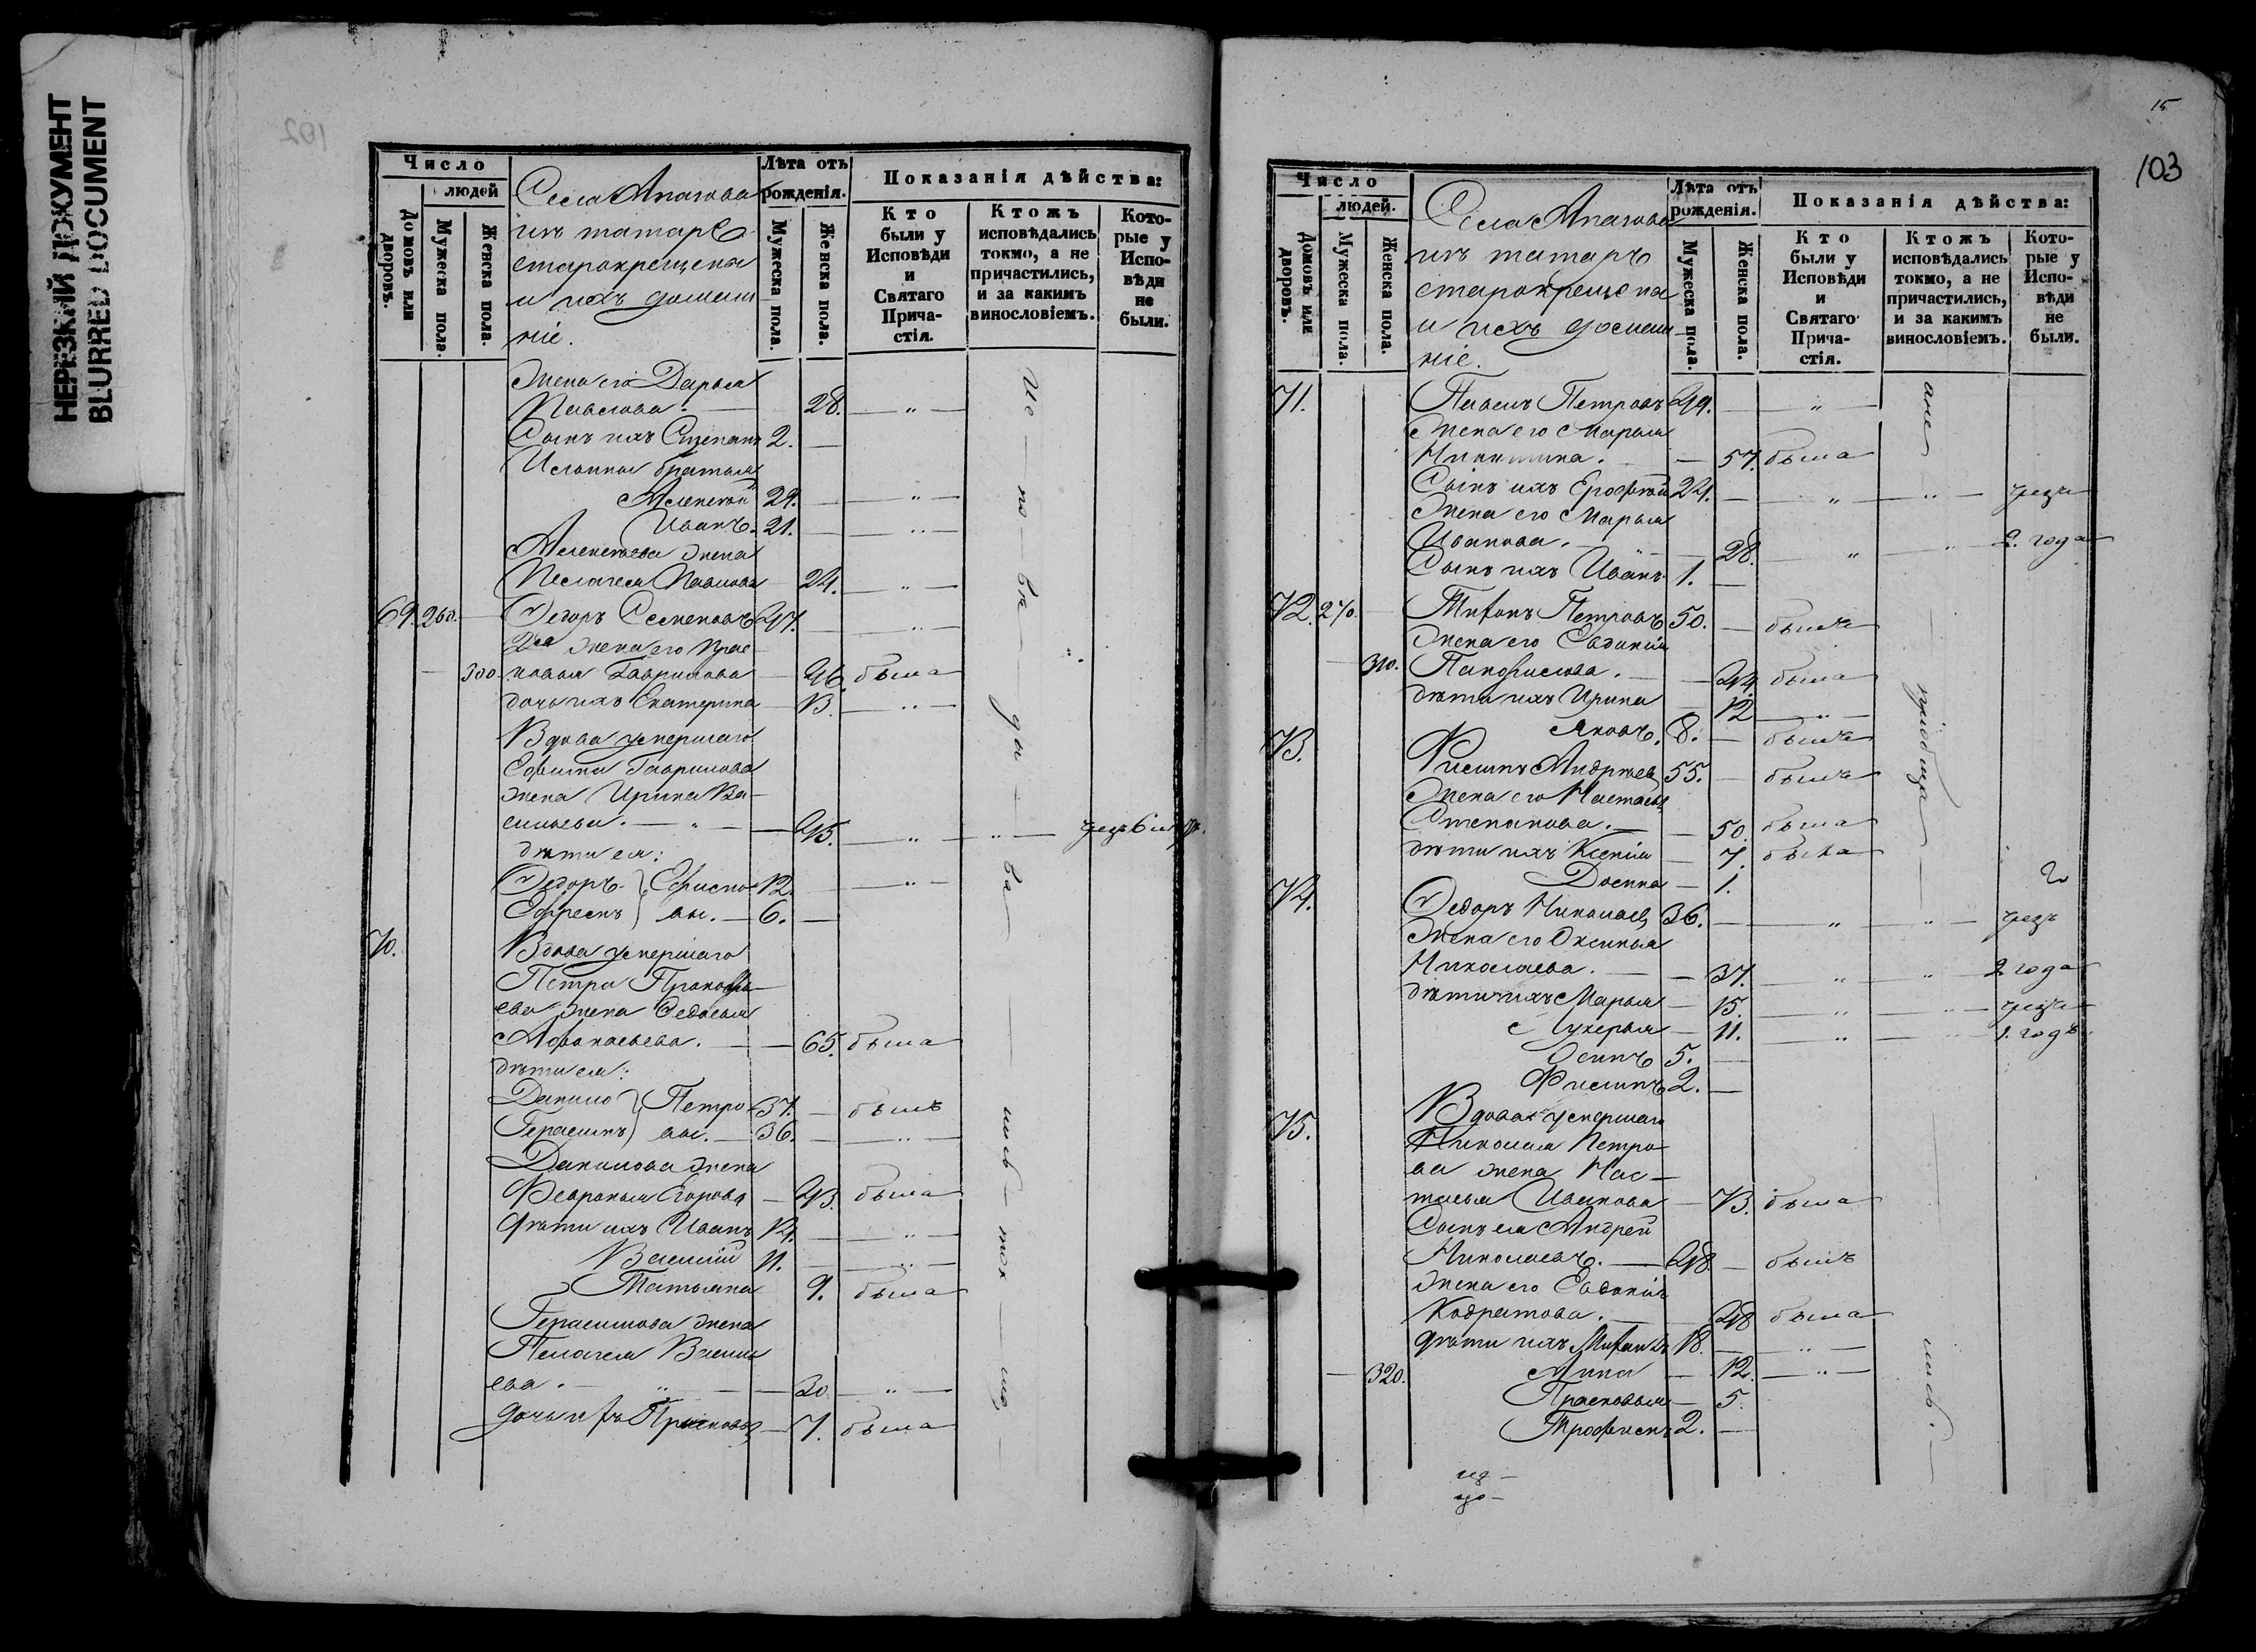 НЕРЕЗКИЙ ДОКУМЕНТ
BLURRED DOCUMENT
102
Число
людей
Домовъ или дворовъ.
Мужеска пола.
Женска пола.
Села Апазова
изъ татаръ
старокрещена
и ихъ домаш
ніе.
Лѣта отъ рожденія.
Мужеска пола.
Женска пола.
Показанія дѣйства:
Кто были у Исповѣди и Святаго Прича-стія.
Ктожъ исповѣдались токмо, а не причастились, и за какимъ винословіемъ.
Кото-рые у Испо-вѣди не были.
Жена его Дарья
Павлова. — 28. — „ —
Сынъ ихъ Степанъ 2. —
братья
Алексѣй 29. — „ —
Иванъ. 21. — „ —
Алексѣева жена
Пелагея Павлова 24. — „ —
69. 260. Ѳедоръ Семеновъ 47. — „ —
2я жена его Прас
300. ковья Гаврилова — 46. была
дочь ихъ Екатерина — 13. — „ —
Вдова умершаго
Гаврилова
жена Ирина Ва-
сильева. — „ — 45. — „ — „ —
дѣти ея:
Ѳедоръ 12. — „ —
Ефремъ вы. — 6. —
70. Вдова умершаго
Петра Прокофь-
ева жена Ѳедосья
Афанасьева. — 65. была
дѣти ея:
Данило Петро 37. — былъ
Герасимъ вы. — 36. — „ —
Данилова жена
Февронья Егорова — 43. была
дѣти ихъ Иванъ 14. — „ —
Василій 11. — „ —
Татьяна 9. была
Герасимова жена
Пелагея Васил
ева. — „ — 30. — „ —
дочь ихъ Прасковья — 7. была
15
103
Число
людей.
Домовъ или дворовъ.
Мужеска пола.
Женска пола.
Села Апазова
изъ татаръ
старокрещена
и ихъ домаш
ніе.
Лѣта отъ рожденія.
Мужеска пола.
Женска пола.
Показанія дѣйства:
Кто были у Исповѣди и Святаго Прича-стія.
Ктожъ исповѣдались токмо, а не причастились, и за какимъ винословіемъ.
Кото-рые у Испо-вѣди не были.
71. Павелъ Петровъ 49. — „ —
Жена его Марья
Никитина. — 57. была
Сынъ ихъ Ерофѣй 24. — „ — „ — чрезъ
Жена его Марья
Иванова. — 28. — „ — „ — 2. года
Сынъ ихъ Иванъ 1. —
72. 270. Тихонъ Петровъ 50. — былъ
Жена его Евдокія
310. Панфилова. — 44. была
дѣти ихъ Ирина — 12 — „ —
Яковъ. 8. — былъ
73. Филипъ Андреевъ 55. — былъ
Жена его Настасья
Степанова. — 50. была
дѣти ихъ Ксенія — 7. была
Домна — 1.
74. Ѳедоръ Николаевъ 36. — „ — „ — чрезъ
Жена его Оксинья
Николаева. — 37. — „ — „ — 2 года
дѣти ихъ Марья — 15. — „ — „ — чрезъ
Лукерья — 11. — „ — 1. годъ.
Осипъ 5. —
Филипъ 2. —
75. Вдова умершаго
Николая Петро-
ва жена Нас-
тасья Иванова — 73. была
Сынъ ея Андрей
Николаевъ. — 48 — былъ
жена его Евдокія
Кодратова. — 48 была
дѣти ихъ 18. — „ —
320. Анна — 12. — „ —
Прасковья — 5.
Трофимъ 2. —